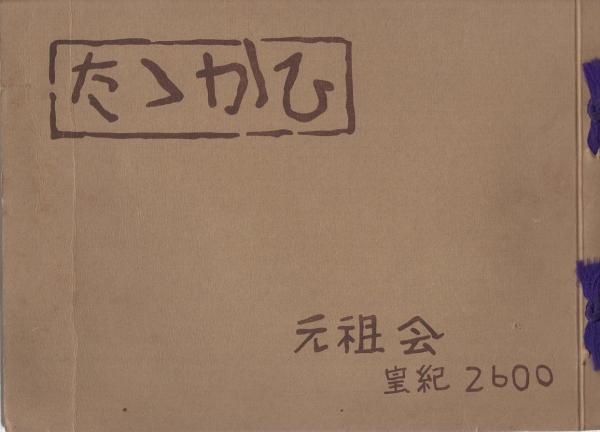 たゝかひ
元祖会
皇紀2600